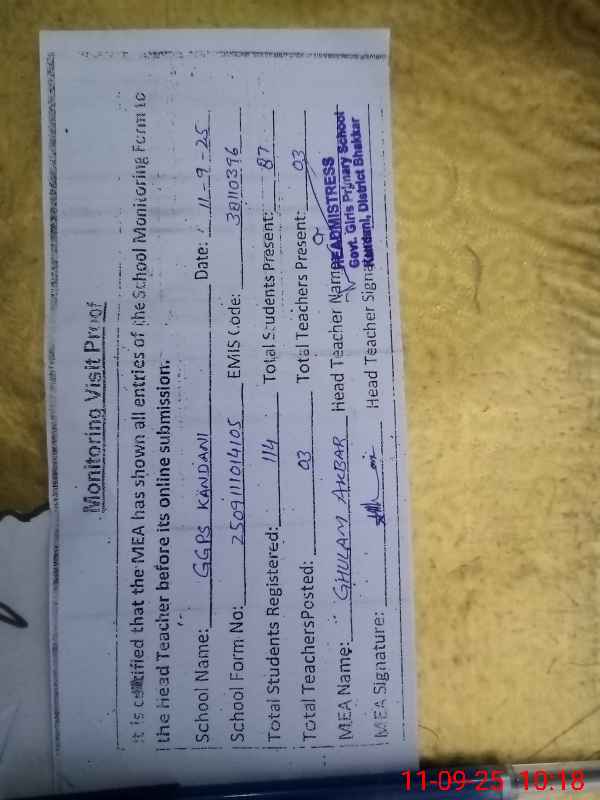 Monitoring Visit Proof
It is certified that the MEA has shown all entries of the School Monitoring Form to
the Head Teacher before its online submission.
School Name: GGPS KANDANI Date: 11-9-25
School Form No: 2509111014105 EMIS Code: 38110396
Total Students Registered: 114 Total Students Present: 87
Total Teachers Posted: 03 Total Teachers Present: 03
MEA Name: GHULAM AKBAR Head Teacher Name
HEADMISTRESS
Govt. Girls Primary School
Kandani, District Bhakkar
MEA Signature: Head Teacher Signa
11-09-25 10:18